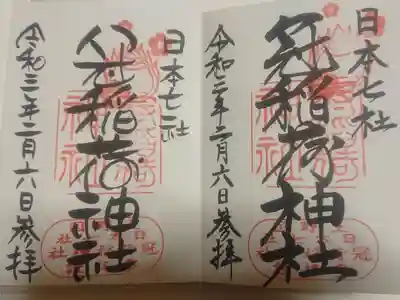 日本七社
冠稲荷神社
令和二年二月六日参拝
日本七社
冠稲荷神社
令和三年二月六日参拝